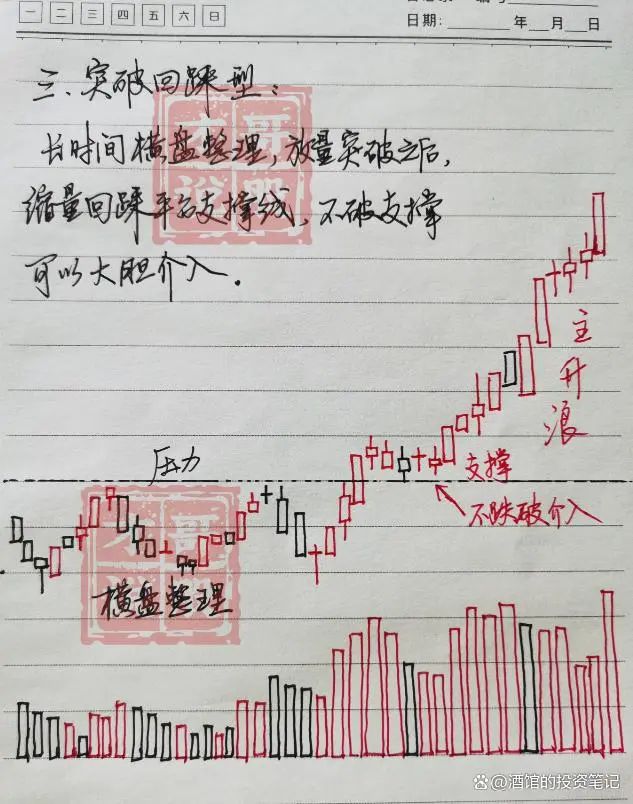 一 二 三 四 五 六 日
日期: 年 月 日
三、突破回踩型:
长时间横盘整理,放量突破之后,
缩量回踩平台支撑线,不破支撑
可以大胆介入.
主升浪
压力
支撑
不跌破介入
横盘整理
@酒馆的投资笔记